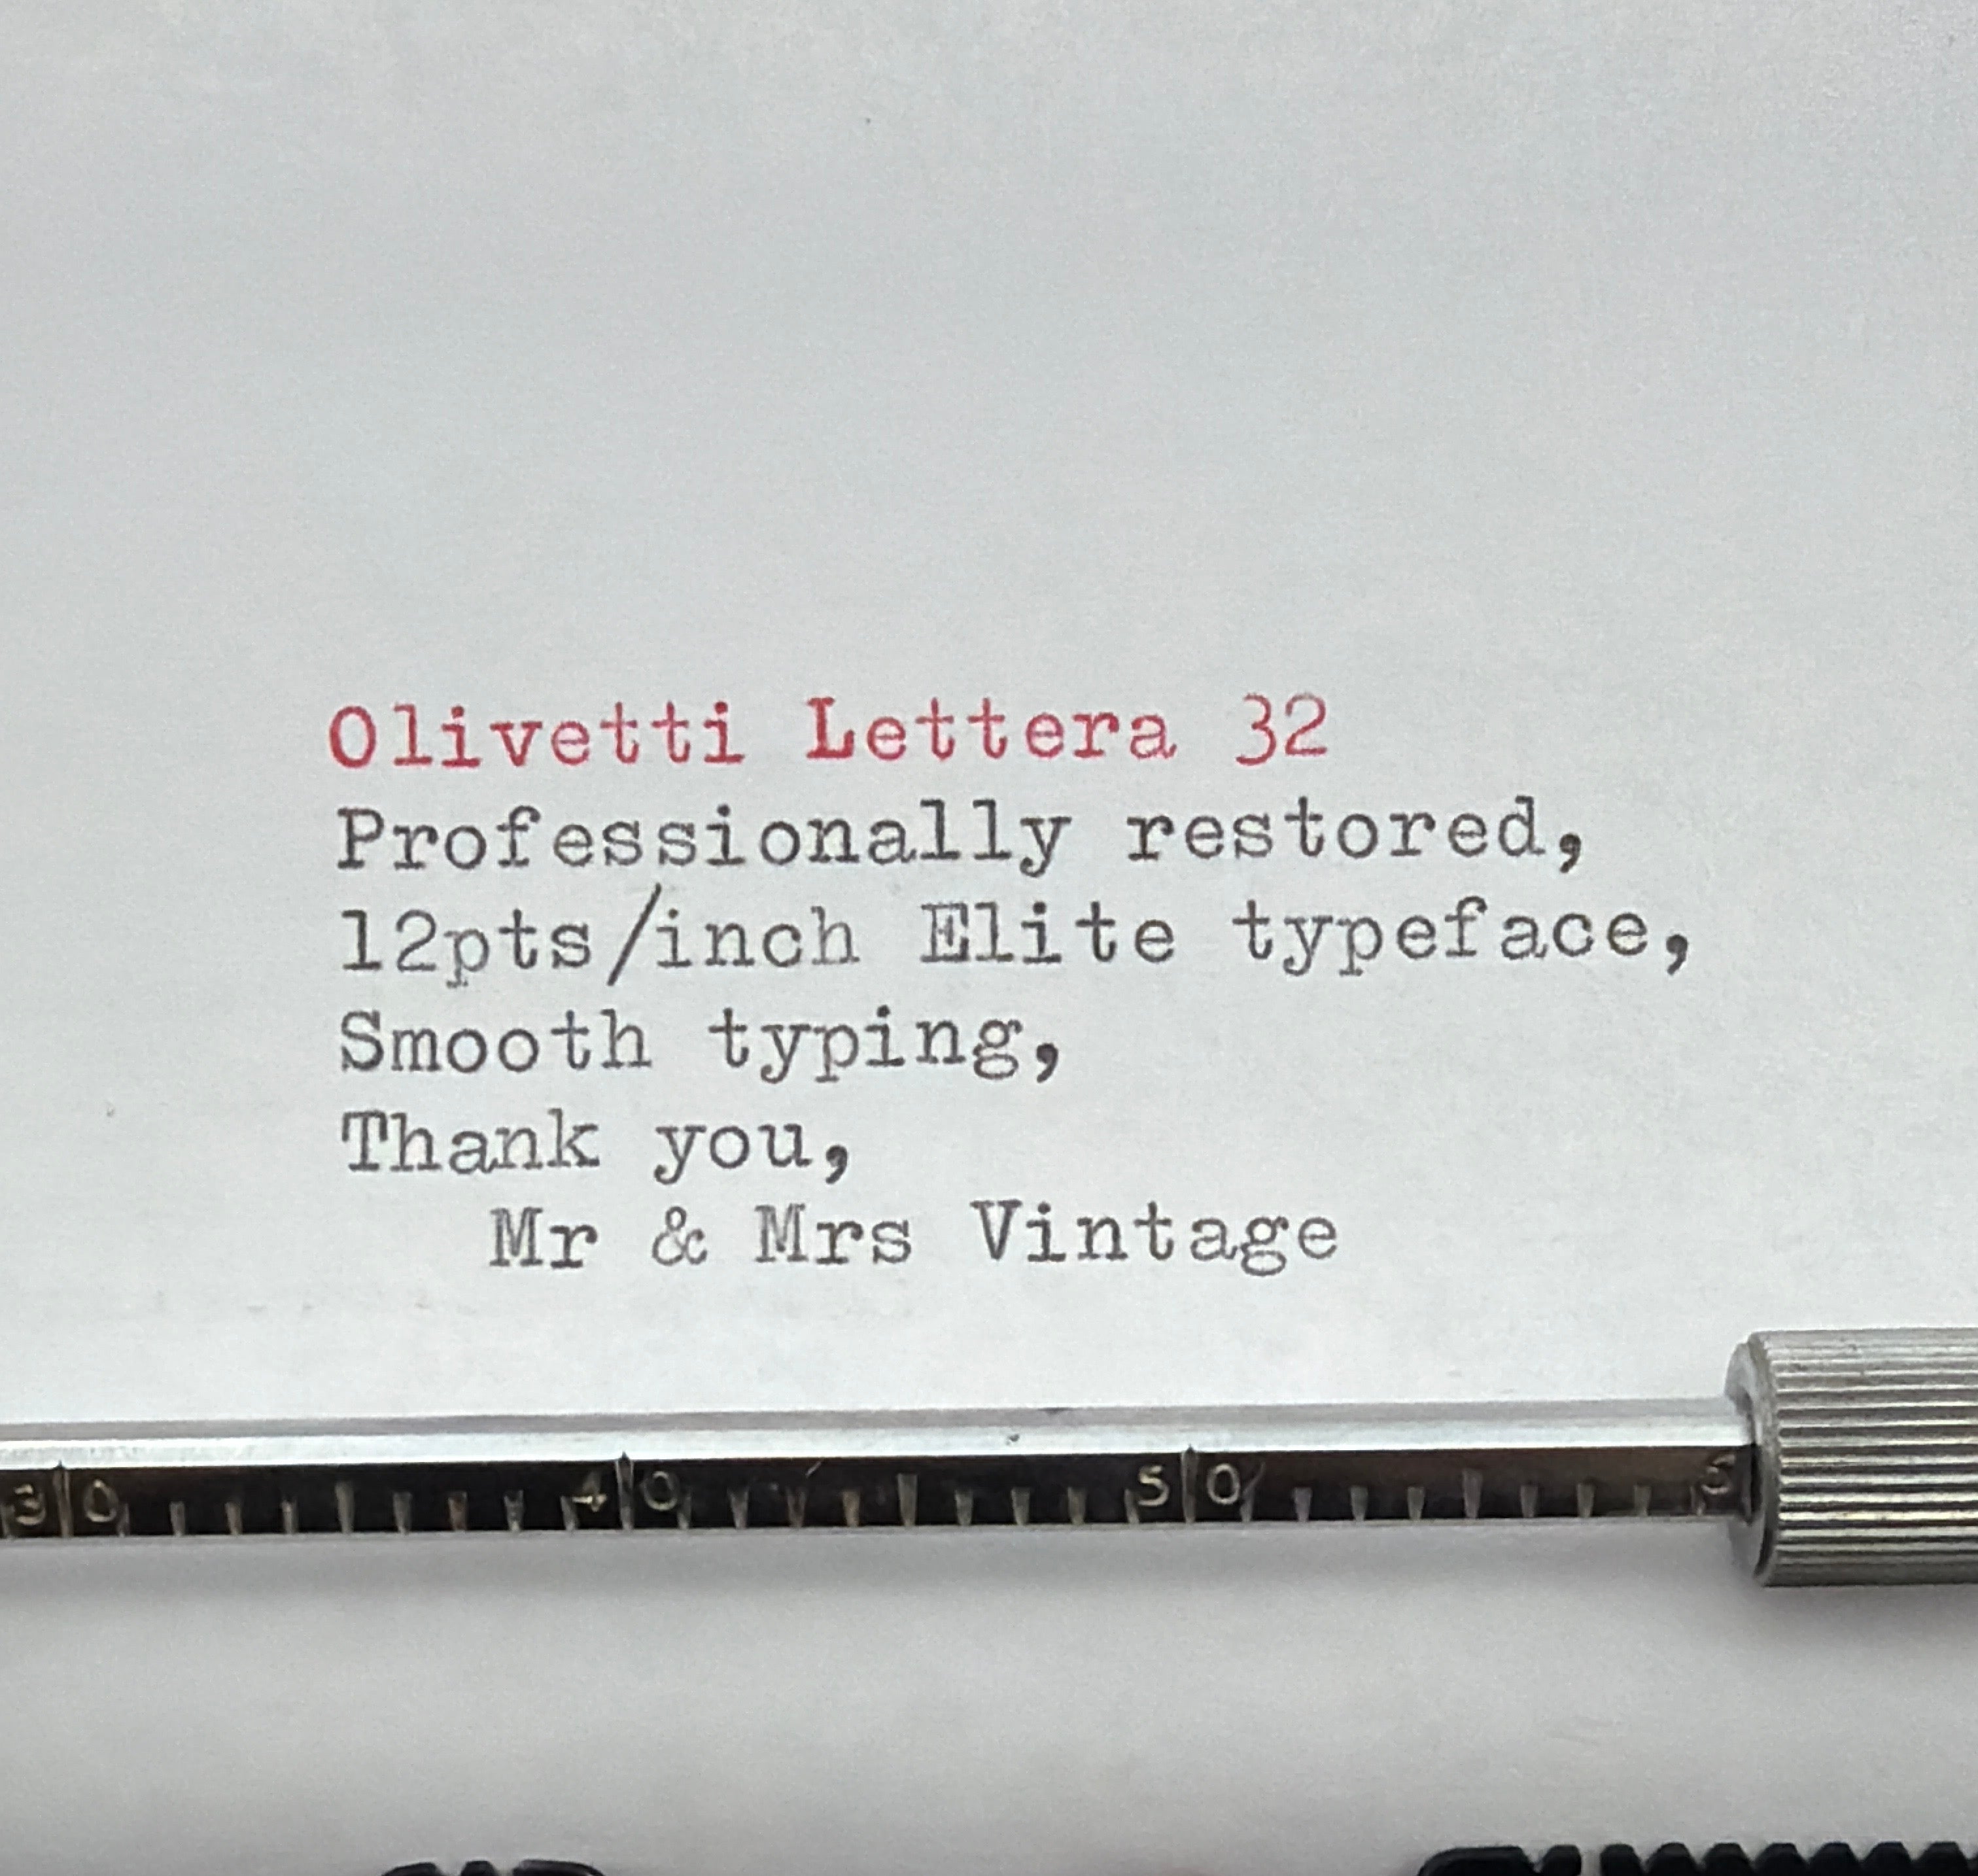 Olivetti Lettera 32
Professionally restored,
12pts/inch Elite typeface,
Smooth typing,
Thank you,
Mr & Mrs Vintage
30 40 50